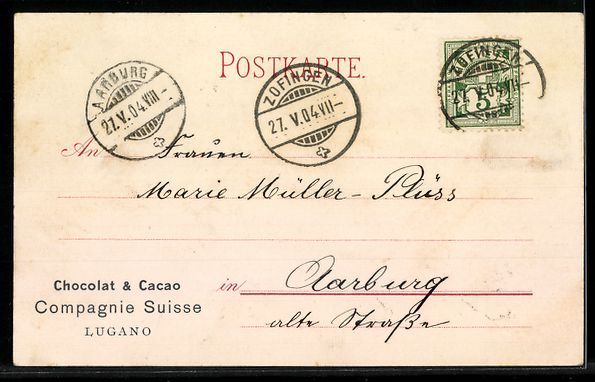 POSTKARTE.
AARBURG
27.V.04.VIII–
ZOFINGEN
27.V.04.VII–
ZOFINGEN
27.V.04.VII
5
An Frauen
Marie Müller-Plüss
in Aarburg
alte Straße
Chocolat & Cacao
Compagnie Suisse
LUGANO